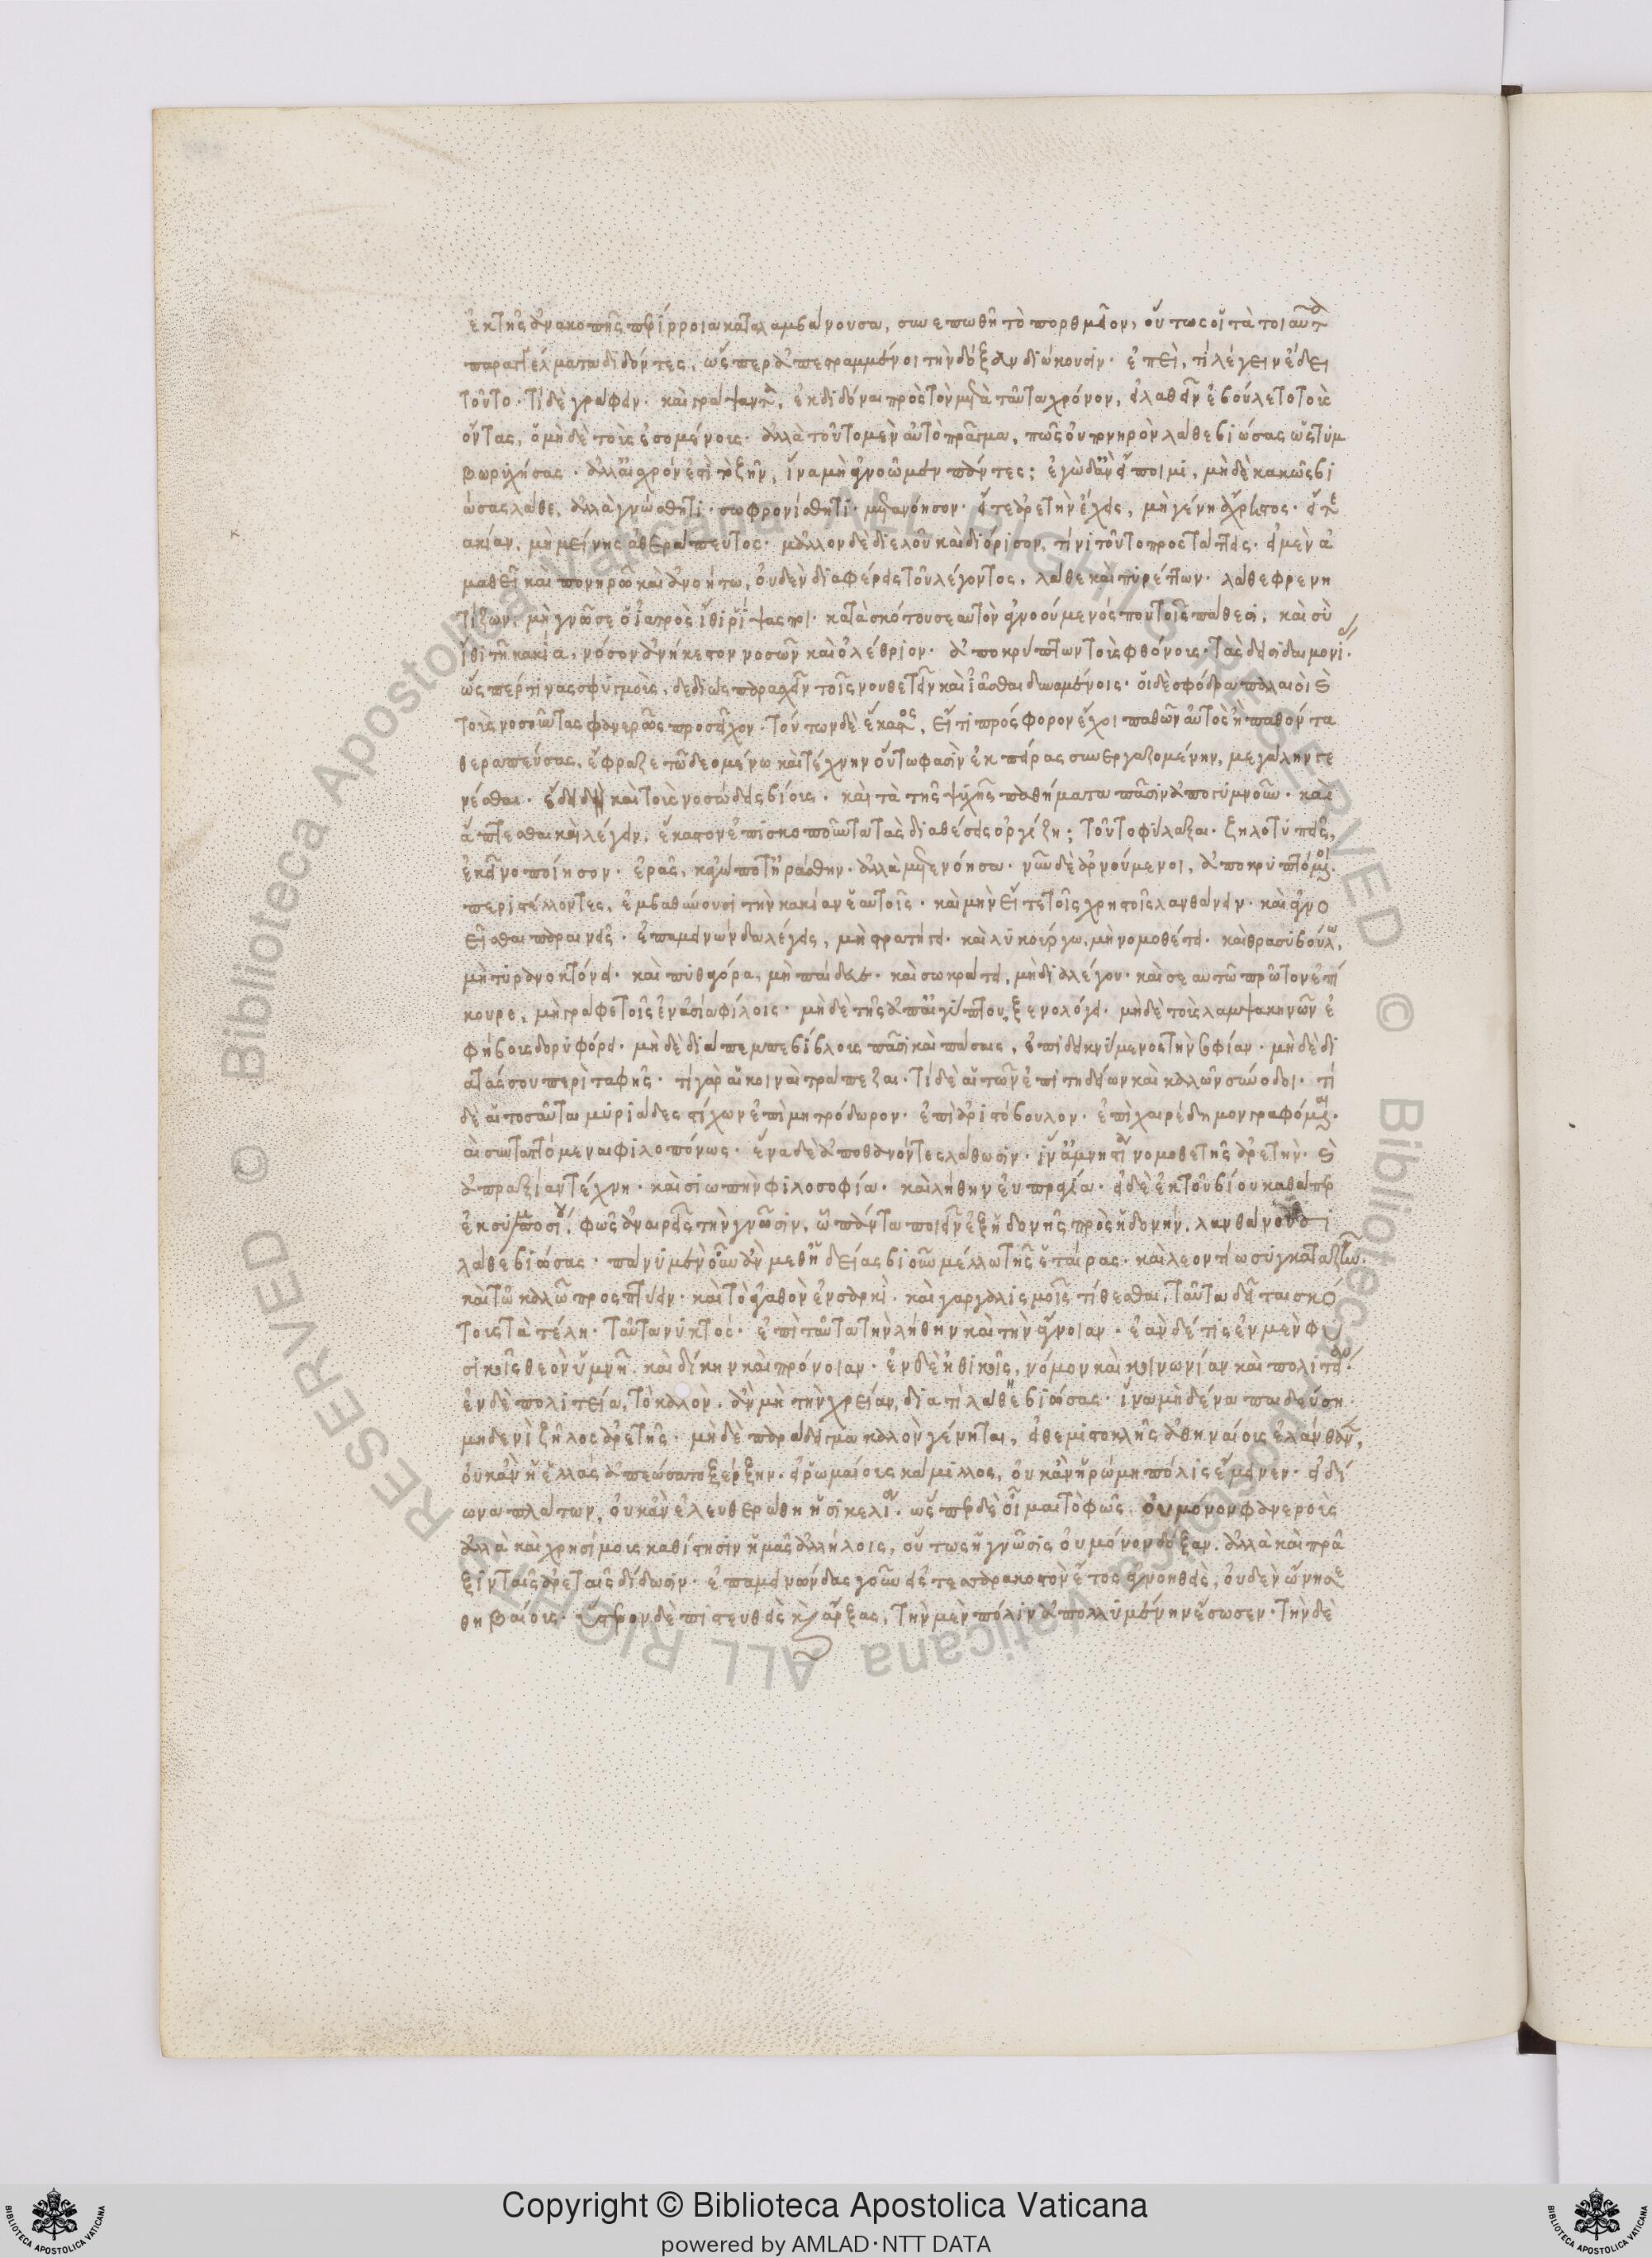 ἐκ τῆς ἀνακοπῆς περίρροια καταλαμβάνουσα, συνεπωθῇ τὸ πορθμεῖον, οὕτως οἱ τὰ τοιαῦτα
παραγγέλματα διδόντες, ὥσπερ ἀπεστραμμένοι τὴν δόξαν διώκουσιν. ἐπεὶ, τί λέγειν ἔδει
τοῦτο. τί δὲ γράφειν. καὶ γράψαντα, ἐκδιδόναι πρὸς τὸν μετὰ ταῦτα χρόνον, εἰ λαθεῖν ἐβούλετο τοὺς
ὄντας, ὁ μηδὲ τοὺς ἐσομένους. ἀλλὰ τοῦτο μὲν αὐτὸ πρᾶγμα, πῶς οὐ πονηρὸν λάθε βιώσας ὡς τυμ
βωρυχήσας. ἀλλ' αἰσχρόν ἐστι τὸ ζῆν, ἵνα μὴ ἀγνοῶμεν πάντες; ἐγὼ δ' ἂν εἴποιμι, μηδὲ κακῶς βι
ώσας λάθε, ἀλλὰ γνώσθητι. σωφρονίσθητι. μετανόησον. εἴτε ἀρετὴν ἔχεις, μὴ γένῃ ἄχρηστος. εἴτε
κακίαν, μὴ μείνῃς ἀθεράπευτος. μᾶλλον δὲ διελοῦ καὶ διόρισον, τίνι τοῦτο προστάττεις. εἰ μὲν ἀ
μαθεῖ καὶ πονηρῶ καὶ ἀνοήτω, οὐδὲν διαφέρεις τοῦ λέγοντος, λάθε καὶ πυρέττων. λάθε φρενι
τίζων. μὴ γνῶ σε ὁ ἰατρὸς ἴθι ῥίψας ποι. κατὰ σκότους ἑαυτὸν ἀγνοούμενος που τοῖς πάθεσι, καὶ σὺ
ἴθι τῆ κακία, νόσον ἀνήκεστον νοσῶν καὶ ὀλέθριον. ἀποκρύπτων τοὺς φθόνους. τὰς δεισιδαιμονίας.
ὥσπερ τινὰς σφυγμοὺς, δεδιὼς παρασχεῖν τοῖς νουθετεῖν καὶ ἰᾶσθαι δυναμένοις. οἱ δὲ σφόδρα παλαιοὶ καὶ
τοὺς νοσοῦντας φανερῶς προσεῖχον. τούτων δὲ ἕκαστος, εἴ τι πρόσφορον ἔχοι παθῶν αὐτὸς ἢ παθόντα
θεραπεύσας, ἔφραζε τῶ δεομένω καὶ τέχνην οὕτω φασὶν ἐκ πείρας συνεργαζομένην, μεγάλην γε
νέσθαι. ἔδει δὴ καὶ τοὺς νοσώδεις βίους. καὶ τὰ τῆς ψυχῆς παθήματα πᾶσιν ἀπογυμνοῦν. καὶ
ἅπτεσθαι καὶ λέγειν. ἕκαστον ἐπισκοποῦντα τὰς διαθέσεις ὀργίζῃ; τοῦτο φύλαξαι. ζηλοτυπεῖς,
ἐκεῖνο ποίησον. ἐρᾶς, κἀγώ ποτ' ἠράσθην. ἀλλὰ μετενόησα. νῦν δὲ ἀρνούμενοι, ἀποκρυπτόμενοι.
περιστέλλοντες, ἐμβαθύνουσι τὴν κακίαν ἑαυτοῖς. καὶ μὴν εἴ γε τοῖς χρηστοῖς λανθάνειν. καὶ ἀγνο
εῖσθαι παραινεῖς. ἐπαμεινώνδα λέγεις, μὴ στρατήγει. καὶ λυκούργω, μὴ νομοθέτει. καὶ θρασυβούλω,
μὴ τυραννοκτόνει. καὶ πυθαγόρα, μὴ παίδευε. καὶ σωκράτει, μὴ διαλέγου. καὶ σεαυτῶ πρῶτον ἐπί
κουρε, μὴ γράφε τοῖς ἐν ἀσία φίλοις. μηδὲ τῆς ἀπ' αἰγύπτου, ξενολόγει. μηδὲ τοὺς λαμψακηνῶν ἐ
φήβους δορυφόρει. μηδὲ διάπεμπε βίβλους πᾶσι καὶ πάσαις, ἐπιδεικνύμενος τὴν σοφίαν. μηδὲ δι
ατάσσου περὶ ταφῆς. τί γὰρ αἱ κοιναὶ τράπεζαι. τί δὲ αἱ τῶν ἐπιτηδείων καὶ καλῶν σύνοδοι. τί
δὲ αἱ τοσαῦται μυριάδες στίχων ἐπὶ μητρόδωρον. ἐπὶ ἀριστόβουλον. ἐπὶ χαιρέδημον γραφόμεναι.
αἱ συνταττόμεναι φιλοπόνως. ἵνα δὲ ἀποθανόντες λάθωσιν. ἵν' ἀμνηστίαν νομοθετῇς ἀρετὴν. καὶ
ἀπραξίαν τέχνη. καὶ σιωπὴν φιλοσοφία. καὶ λήθην εὐπραγία. εἰ δὲ ἐκ τοῦ βίου καθάπερ
ἐκ συμποσίου, φῶς ἀναιρεῖς τὴν γνῶσιν, ὡς πάντα ποιεῖν ἐξῇ δονῆς πρὸς ἡδονὴν, λανθάνουσι
λάθε βιώσας. πάνυ μὲν οὖν ἂν μεθ' ἡδείας βιοῦν μέλλω τῆς ἑταίρας. καὶ λεοντίω συγκαταζῆν.
καὶ τῶ καλῶ προσπτύειν. καὶ τὸ ἀγαθὸν ἐν σαρκὶ. καὶ γαργαλισμοῖς τίθεσθαι. ταῦτα δεῖται σκό
τους τὰ τέλη. ταῦτα νυκτὸς. ἐπὶ ταῦτα τὴν λήθην καὶ τὴν ἄγνοιαν. ἐὰν δέ τις ἐν μὲν φυ
σικοῖς θεὸν ὑμνῆ. καὶ δίκην καὶ πρόνοιαν. ἐν δὲ ἠθικοῖς, νόμον καὶ κοινωνίαν καὶ πολιτείαν.
ἐν δὲ πολιτεία, τὸ καλὸν. ἀλλὰ μὴ τὴν χρείαν, διατί λάθη βιώσας. ἵνα μηδένα παιδεύση
μηδενὶ ζῆλος ἀρετῆς. μηδὲ παράδειγμα καλὸν γένηται, εἰ θεμιστοκλῆς ἀθηναίους ἐλάνθανεν,
οὐκ ἂν ἡ ἑλλὰς ἀπεώσατο ξέρξην. εἰ ῥωμαίους κάμιλλος, οὐκ ἂν ἡ ῥώμη πόλις ἔμεινεν. εἰ δί
ωνα πλάτων, οὐκ ἂν ἐλευθερώθη ἡ σικελία. ὥσπερ δὲ οἶμαι τὸ φῶς. οὐ μόνον φανεροὺς
ἀλλὰ καὶ χρησίμους καθίστησιν ἡμᾶς ἀλλήλοις, οὕτως ἡ γνῶσις οὐ μόνον δόξαν. ἀλλὰ καὶ πρᾶ
ξιν ταῖς ἀρεταῖς δίδωσιν. ἐπαμεινώνδας γοῦν εἰς τεσσαρακοστὸν ἔτος ἀγνοηθεὶς, οὐδὲν ὤνησε
θηβαίους. ὕστερον δὲ πιστευθεὶς καὶ ἄρξας, τὴν μὲν πόλιν ἀπολλυμένην ἔσωσεν. τὴν δὲ
Copyright © Biblioteca Apostolica Vaticana
powered by AMLAD·NTT DATA